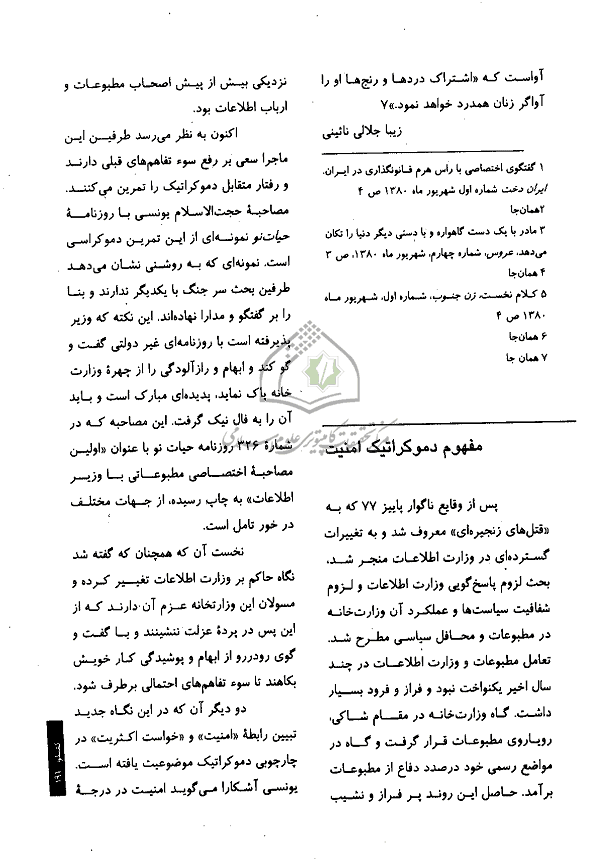 آواست که «اشتراک دردها و رنج‌ها او را
آواگر زنان همدرد خواهد نمود.»۷
زیبا جلالی نائینی
۱ گفتگوی اختصاصی با رأس هرم قانونگذاری در ایران.
ایران دخت شماره اول شهریور ماه ۱۳۸۰ ص ۴
۲همان‌جا
۳ مادر با یک دست گاهواره و با دستی دیگر دنیا را تکان
می‌دهد، عروس، شماره چهارم، شهریور ماه ۱۳۸۰، ص ۳
۴ همان‌جا
۵ کلام نخست، زن جنوب، شماره اول، شهریور ماه
۱۳۸۰ ص ۴
۶ همان‌جا
۷ همان جا
مفهوم دموکراتیک امنیت
پس از وقایع ناگوار پاییز ۷۷ که به
«قتل‌های زنجیره‌ای» معروف شد و به تغییرات
گسترده‌ای در وزارت اطلاعات منجر شد،
بحث لزوم پاسخ‌گویی وزارت اطلاعات و لزوم
شفافیت سیاست‌ها و عملکرد آن وزارت‌خانه
در مطبوعات و محافل سیاسی مطرح شد.
تعامل مطبوعات و وزارت اطلاعات در چند
سال اخیر یکنواخت نبود و فراز و فرود بسیار
داشت. گاه وزارت‌خانه در مقام شاکی،
رویاروی مطبوعات قرار گرفت و گاه در
مواضع رسمی خود درصدد دفاع از مطبوعات
برآمد. حاصل این روند پر فراز و نشیب
نزدیکی بیش از پیش اصحاب مطبوعات و
ارباب اطلاعات بود.
اکنون به نظر می‌رسد طرفین این
ماجرا سعی بر رفع سوء تفاهم‌های قبلی دارند
و رفتار متقابل دموکراتیک را تمرین می‌کنند.
مصاحبهٔ حجت‌الاسلام یونسی با روزنامهٔ
حیات‌نو نمونه‌ای از این تمرین دموکراسی
است. نمونه‌ای که به روشنی نشان می‌دهد
طرفین بحث سر جنگ با یکدیگر ندارند و بنا
را بر گفتگو و مدارا نهاده‌اند. این نکته که وزیر
پذیرفته است با روزنامه‌ای غیر دولتی گفت و
گو کند و ابهام و رازآلودگی را از چهرهٔ وزارت
خانه پاک نماید، پدیده‌ای مبارک است و باید
آن را به فال نیک گرفت. این مصاحبه که در
شمارهٔ ۳۲۶ روزنامه حیات نو با عنوان «اولین
مصاحبهٔ اختصاصی مطبوعاتی با وزیر
اطلاعات» به چاپ رسیده، از جهات مختلف
در خور تامل است.
نخست آن که همچنان که گفته شد
نگاه حاکم بر وزارت اطلاعات تغییر کرده و
مسولان این وزارتخانه عزم آن دارند که از
این پس در پردهٔ عزلت ننشینند و با گفت و
گوی رودررو از ابهام و پوشیدگی کار خویش
بکاهند تا سوء تفاهم‌های احتمالی برطرف شود.
دو دیگر آن که در این نگاه جدید
تبیین رابطهٔ «امنیت» و «خواست اکثریت» در
چارچوبی دموکراتیک موضوعیت یافته است.
یونسی آشکارا می‌گوید امنیت در درجهٔ
۱۹۱